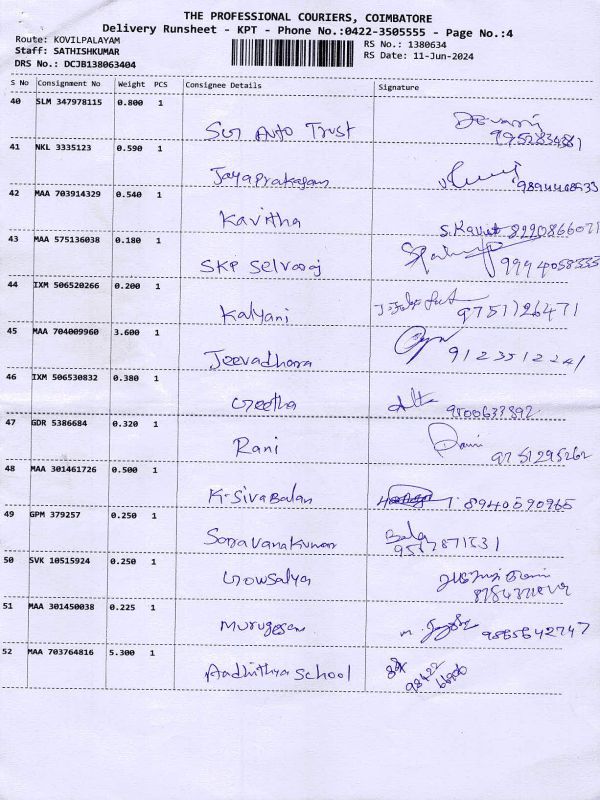 THE PROFESSIONAL COURIERS, COIMBATORE
Delivery Runsheet - KPT - Phone No.:0422-3505555 - Page No.:4
Route: KOVILPALAYAM RS No.: 1380634
Staff: SATHISHKUMAR RS Date: 11-Jun-2024
DRS No.: DCJB138063404
S No Consignment No Weight PCS Consignee Details Signature
40 SLM 347978115 0.800 1
Sun Auto Trust
41 NKL 3335123 0.590 1
Jayaprakasam
42 MAA 703914329 0.540 1
Kavitha
43 MAA 575136038 0.180 1 S. Kavit
SKP Selvaraj 9994058333
44 IXM 506520266 0.200 1
Kalyani 9751126471
45 MAA 704009960 3.600 1
Jeevadhara 9123512241
46 IXM 506530832 0.380 1
Geetha 9500633892
47 GDR 5386684 0.320 1
Rani 9751295262
48 MAA 301461726 0.500 1
K. Sivabalan 8940590965
49 GPM 379257 0.250 1
Saravanakumar Bala
50 SVK 10515924 0.250 1
Gowsalya
51 MAA 301450038 0.225 1
Murugesan 9865642747
52 MAA 703764816 5.300 1
Aadhithya School